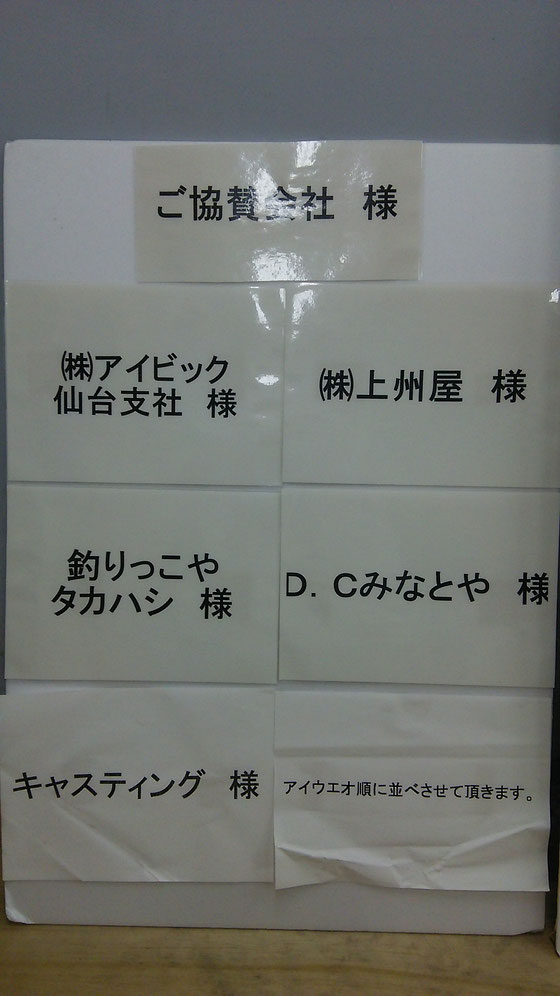 ご協賛会社　様
㈱アイビック
仙台支社　様
㈱上州屋　様
釣りっこや
タカハシ　様
Ｄ．Ｃみなとや　様
キャスティング　様
アイウエオ順に並べさせて頂きます。